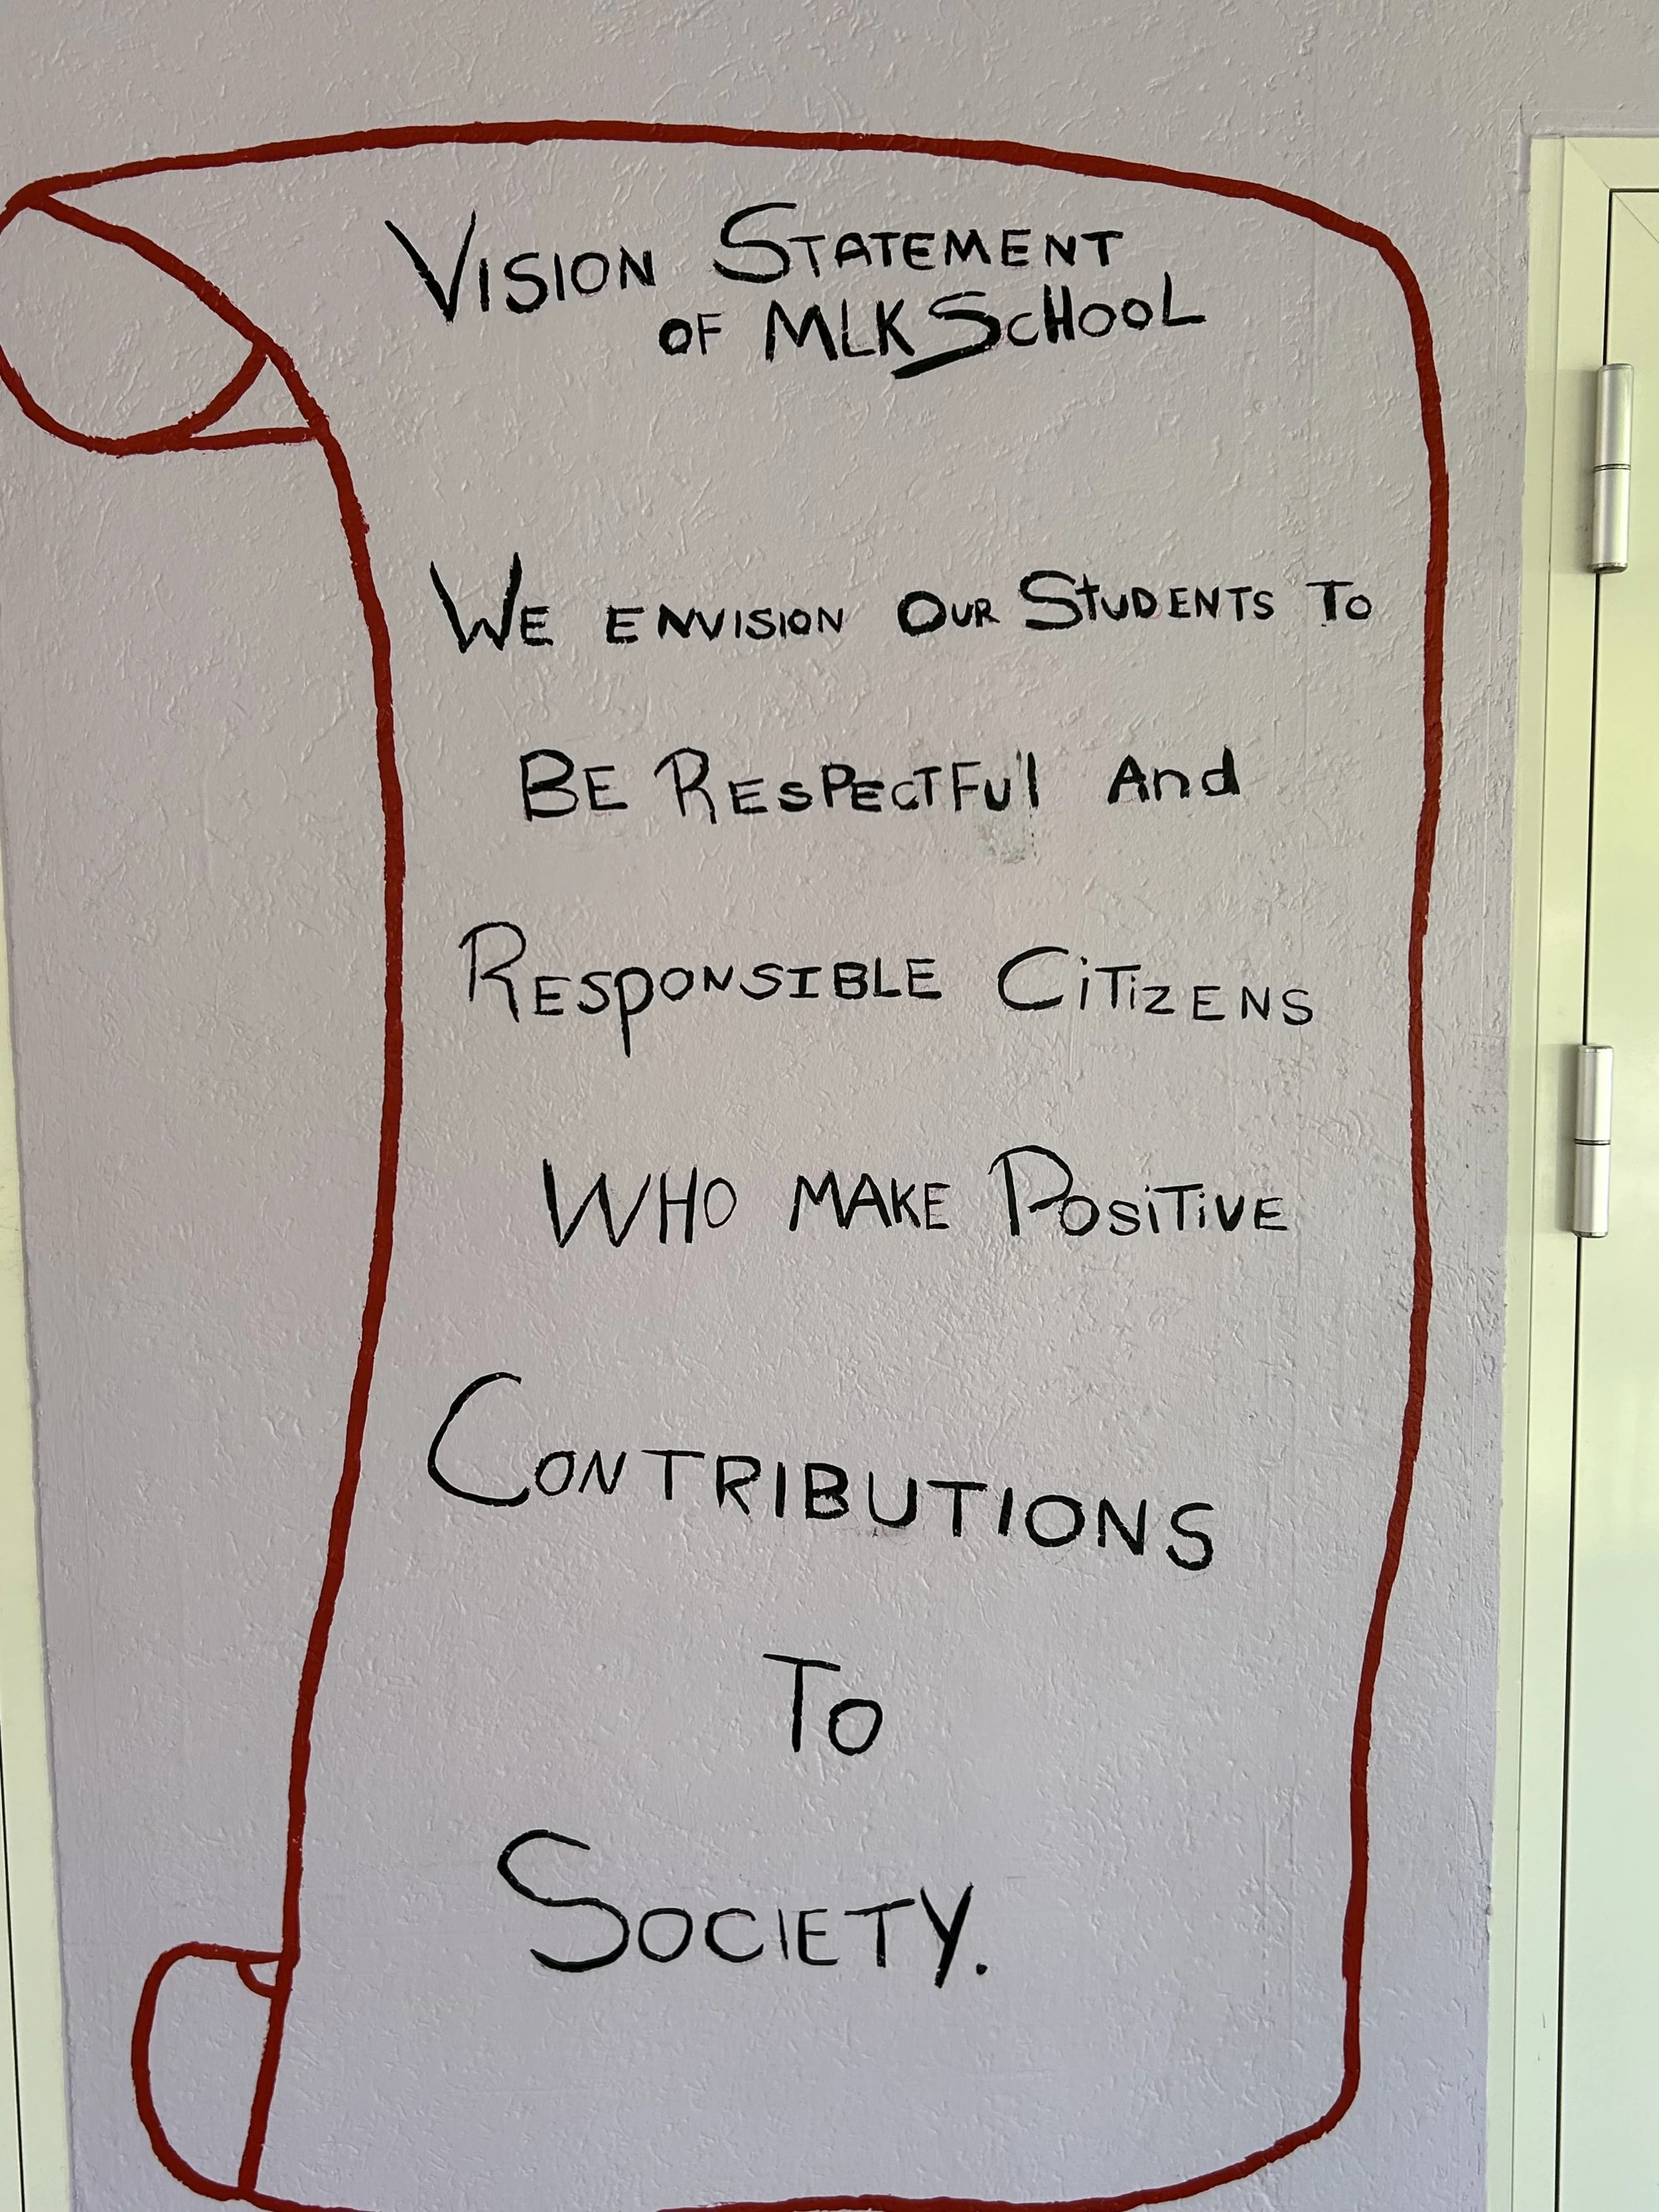 VISION STATEMENT
OF MLK SCHOOL
WE ENVISION OUR STUDENTS TO
BE RESPECTFUl And
RESPONSIBLE CiTiZENS
WHO MAKE POSiTiVE
CONTRIBUTIONS
To
SOCIETY.